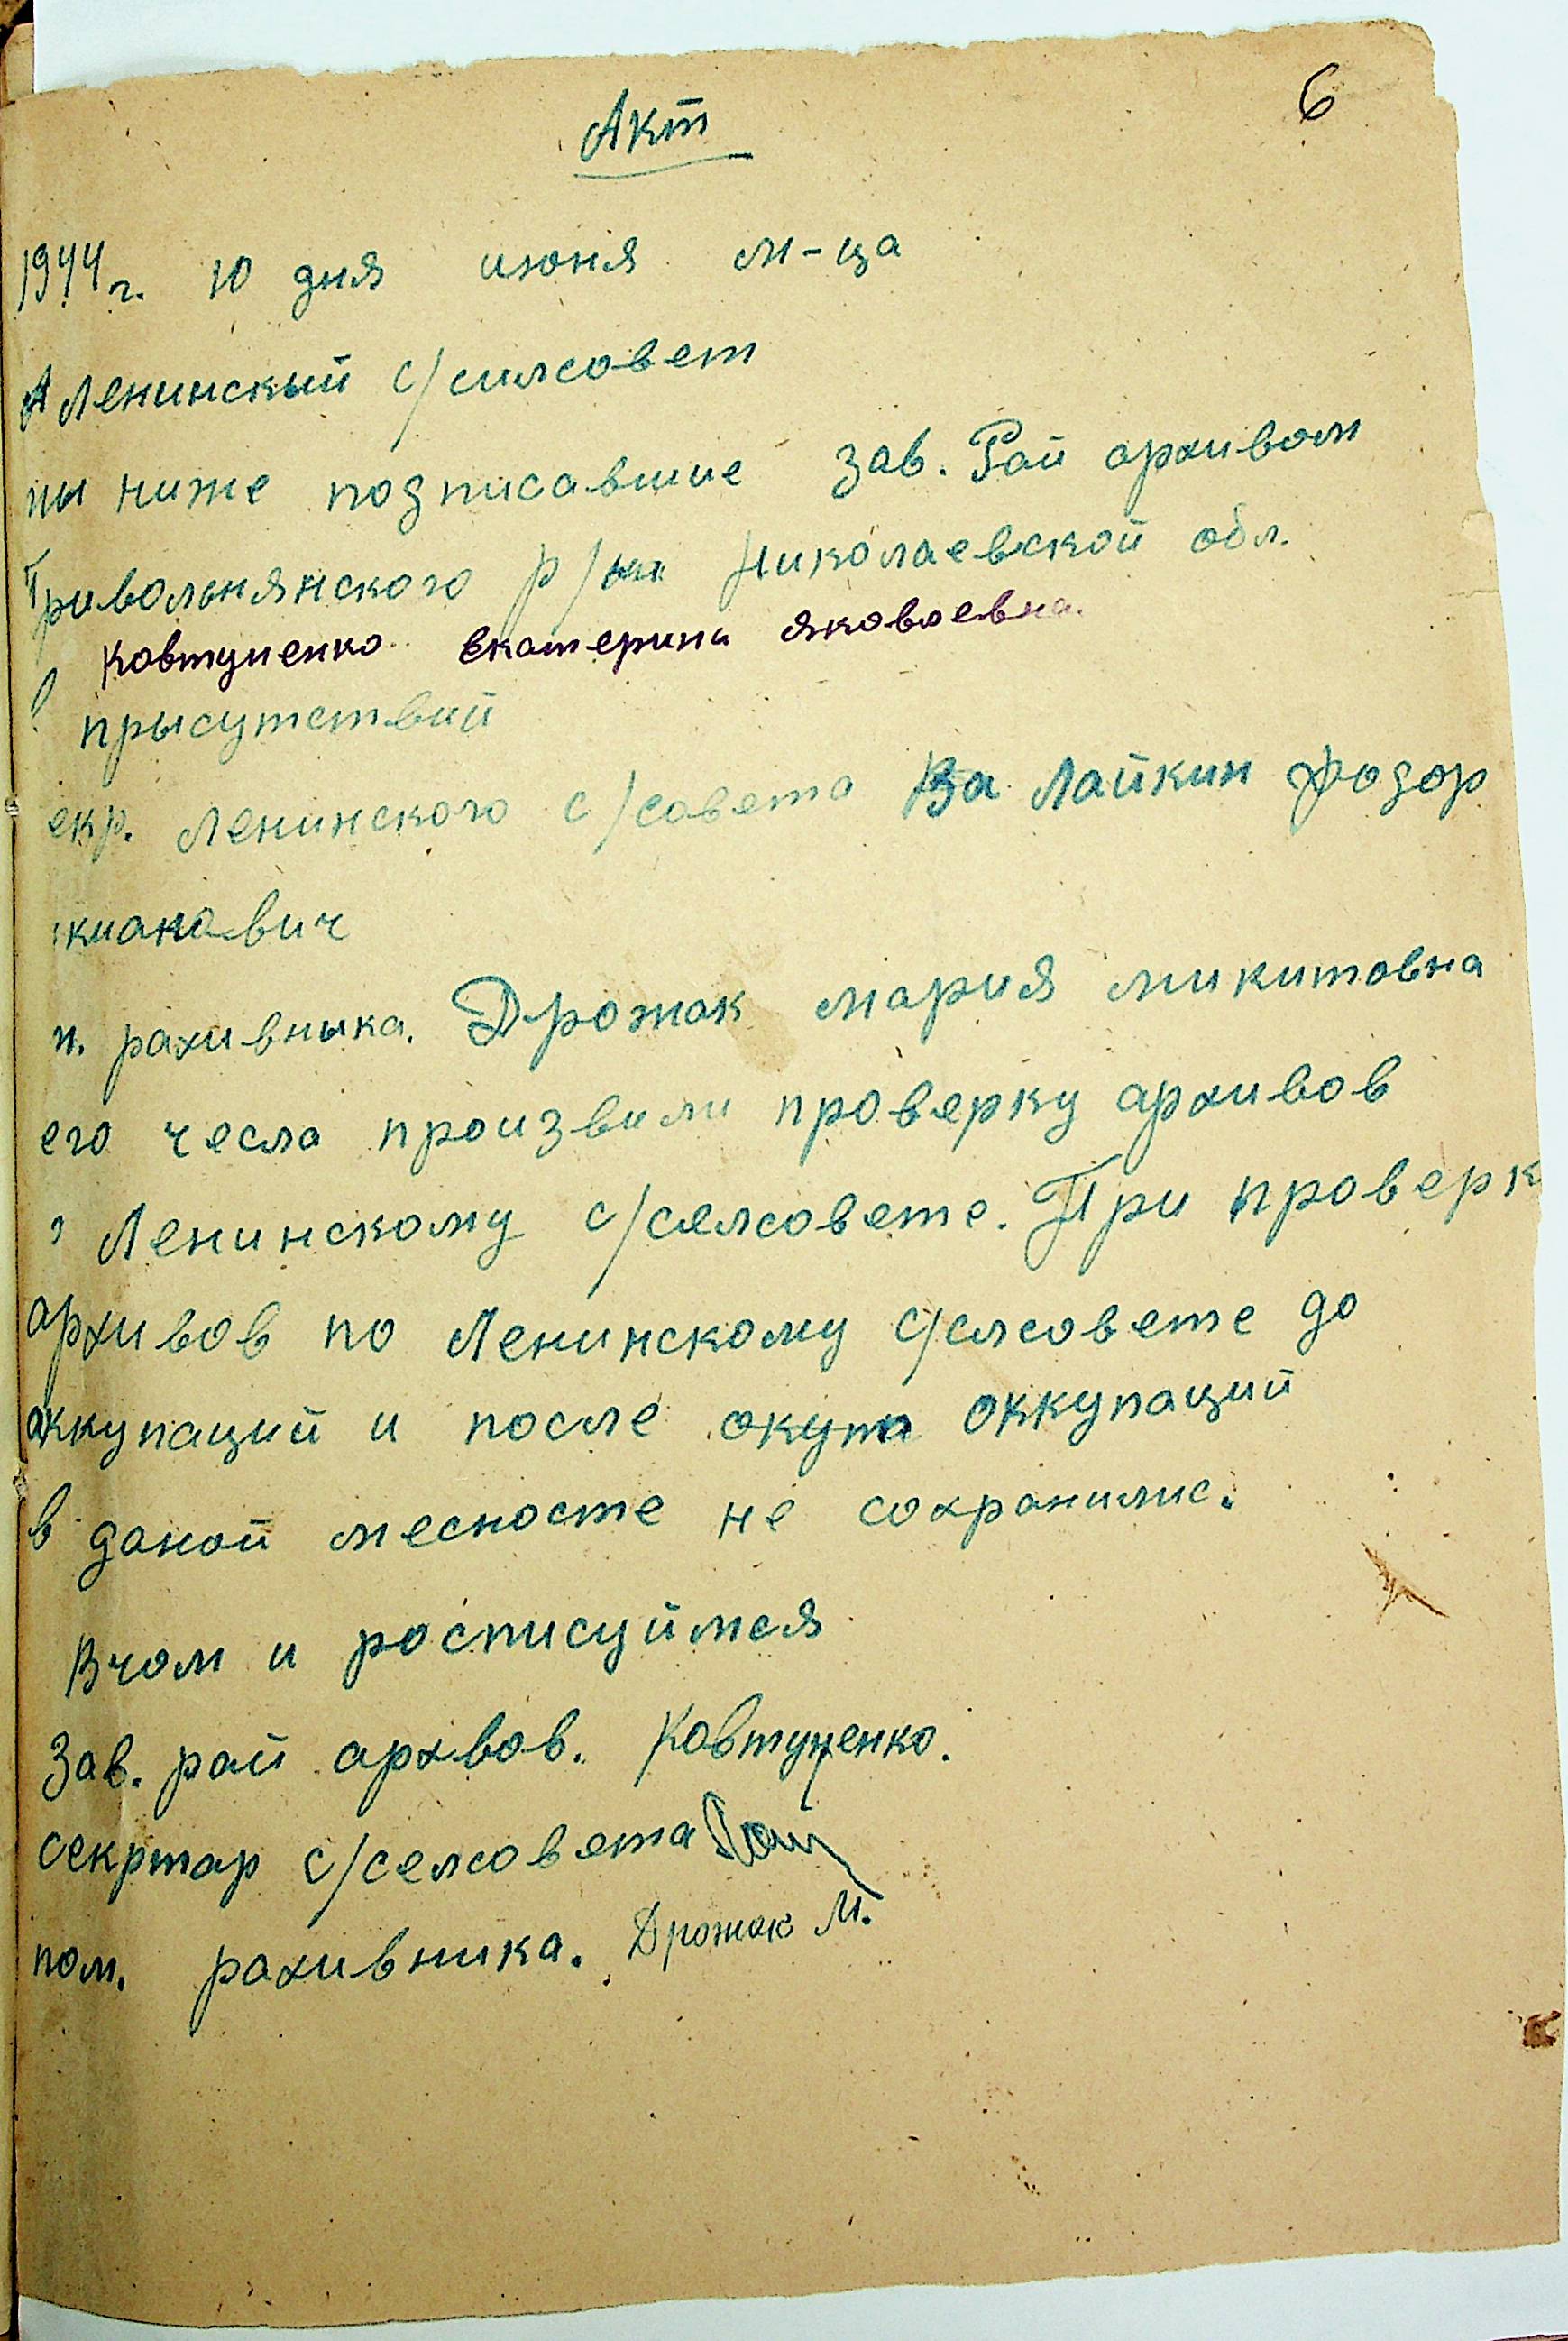 6
Акт
1944 г. 10 дня июня м-ца
Ленинский с/силсовет
мы ниже подписавшие Зав. Рай архивом
Привольнянского р/на Николаевской обл.
Ковтуненко Екатерина Яковлевна.
в присутствий
екр. Ленинского с/совета Лайкин Фодор
п. рахивныка. Дрожак мария микитовна
его чесла произвели проверку архивов
Ленинскому с/селсовете. При проверк
архивов по Ленинскому с/слсовете до
аккупаций и после окупа оккупаций
в даной месносте не сохранилис.
Вчом и росписуймся
Зав. рай архвов. Ковтуненко.
секртар с/селсовета
пом. рахивника. Дрожак М.